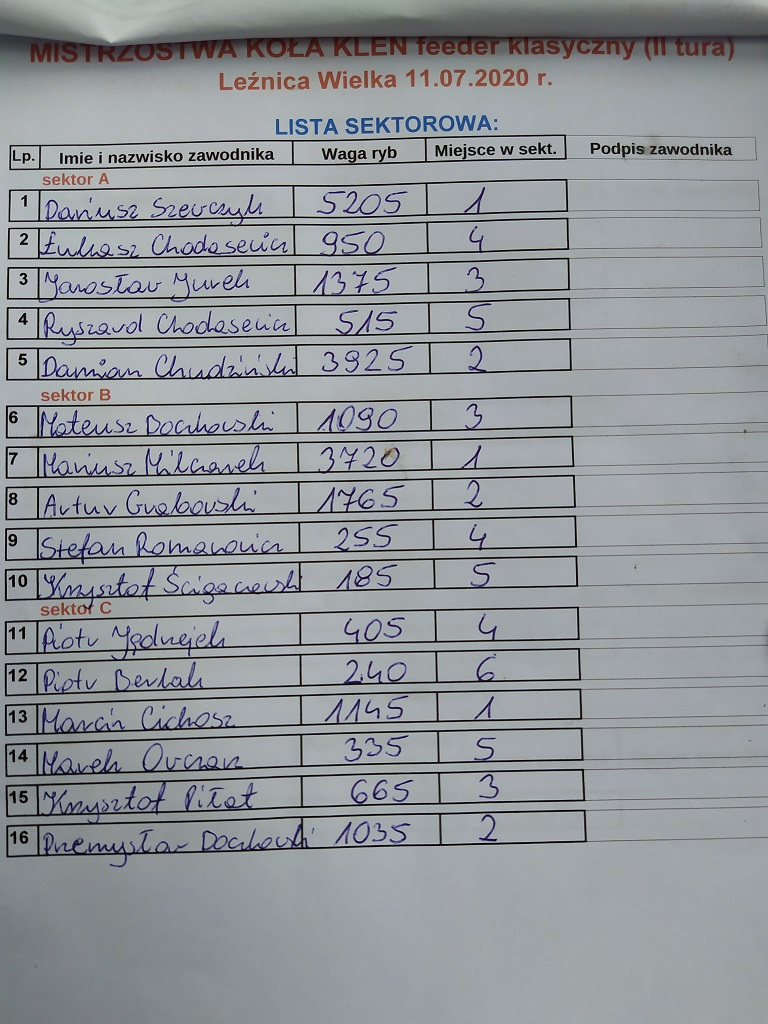 MISTRZOSTWA KOŁA KLEN feeder klasyczny (II tura)
Leźnica Wielka 11.07.2020 r.
LISTA SEKTOROWA:
Lp. Imie i nazwisko zawodnika Waga ryb Miejsce w sekt. Podpis zawodnika
sektor A
1 Dariusz Szewczyk 5205 1
2 Łukasz Chodasewicz 950 4
3 Jarosław Jurek 1375 3
4 Ryszard Chodasewicz 515 5
5 Damian Chudziński 3925 2
sektor B
6 Mateusz Dochowski 1090 3
7 Mariusz Milczarek 3720 1
8 Artur Grabowski 1765 2
9 Stefan Romanowicz 255 4
10 Krzysztof 185 5
sektor C
11 Piotr Jędrzejek 405 4
12 Piotr Berlak 240 6
13 Marcin Cichosz 1145 1
14 Marek Owczarz 335 5
15 Krzysztof Piłat 665 3
16 Przemysław Dochowski 1035 2